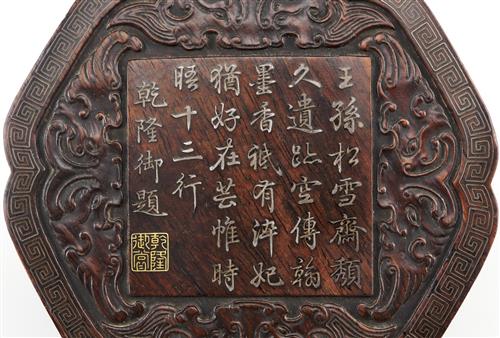 王孫松雪齋頹
久遺跡空傳翰
墨香祗有淬妃
猶好在芸帷時
晤十三行
乾隆御題
乾隆
御